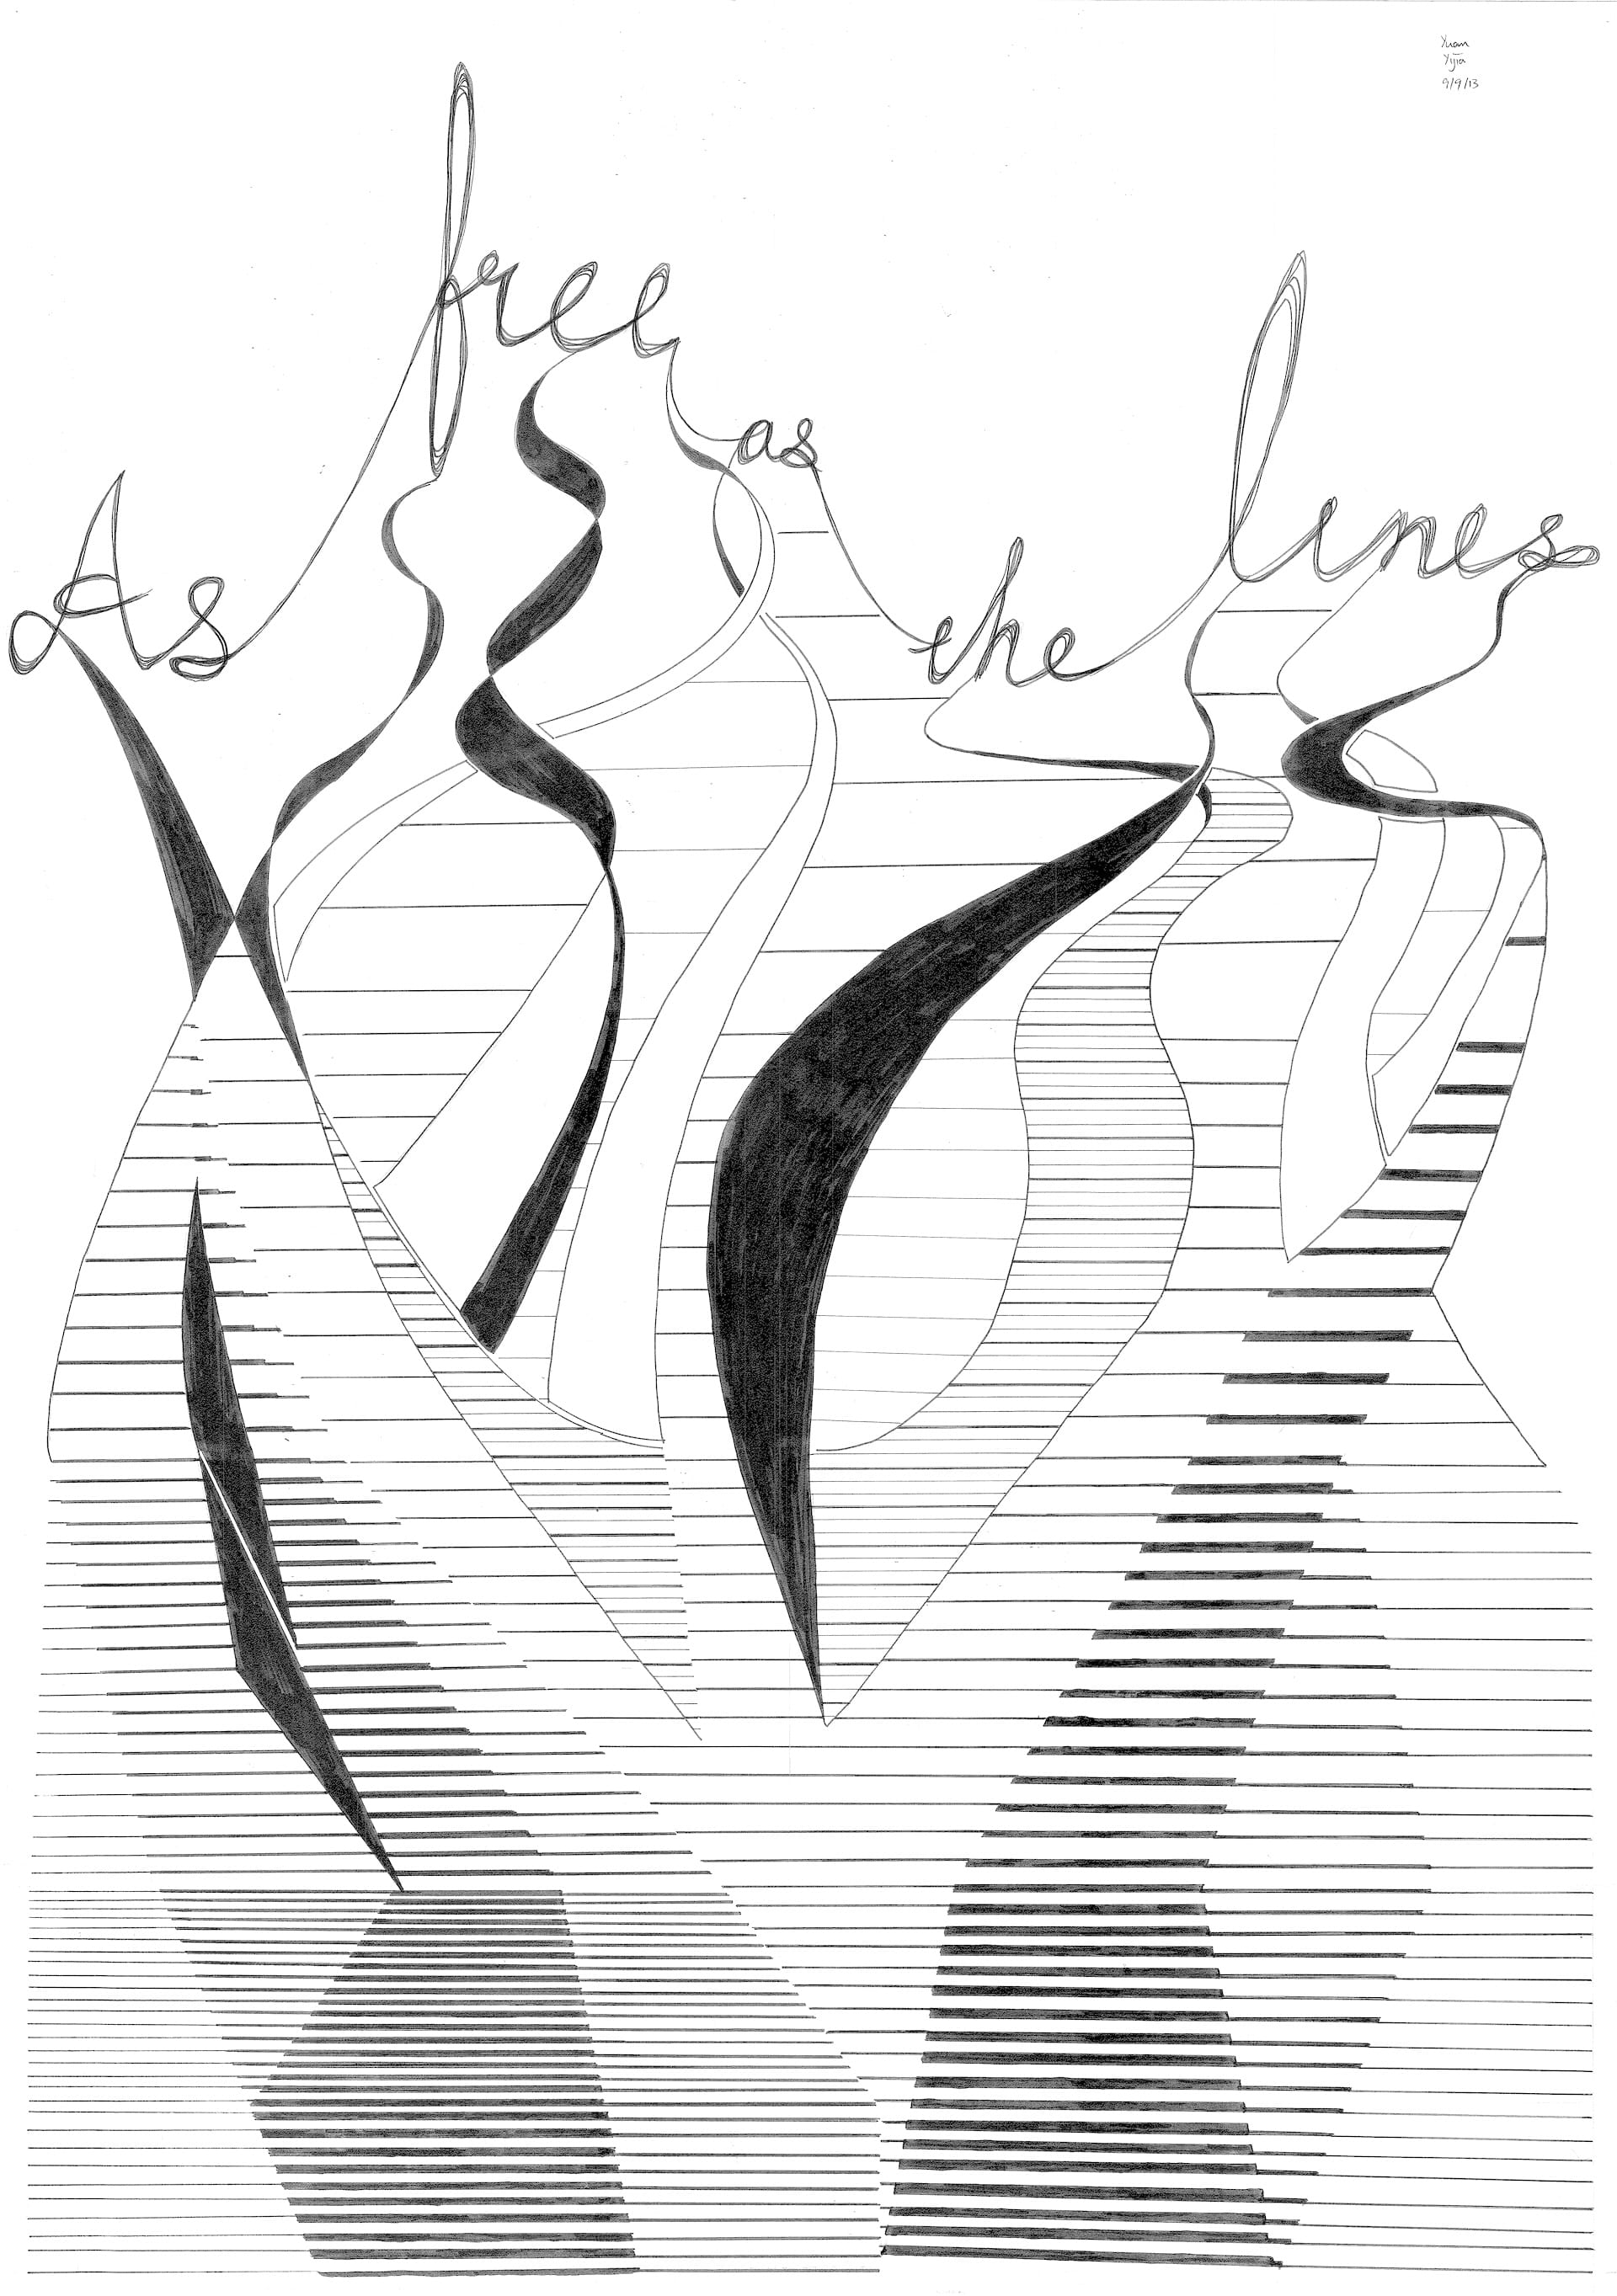 Yuan
Yijia
9/9/13
As free as the lines